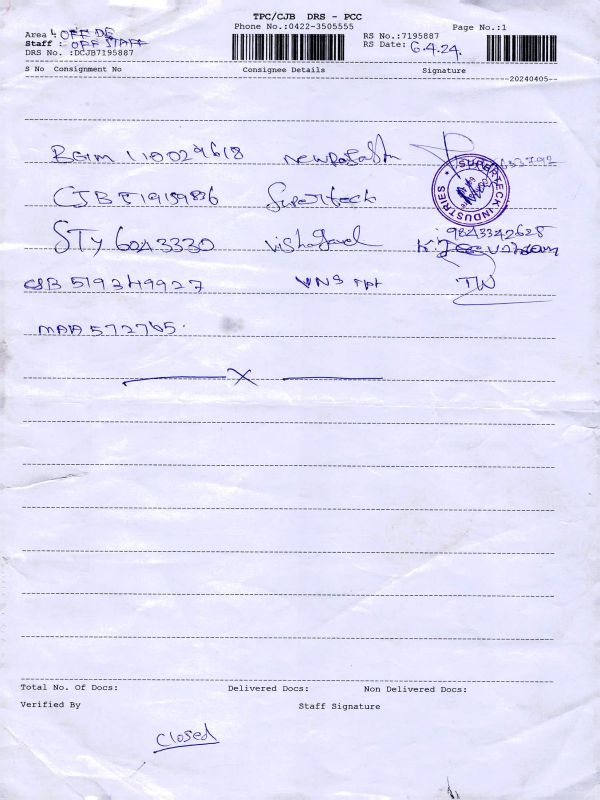 TPC/CJB DRS - PCC
Phone No.:0422-3505555 Page No.:1
Area : OFF DE RS No.:7195887
Staff : OFF STAFF RS Date: 6.4.24.
DRS No. :DCJB7195887
S No Consignment No Consignee Details Signature
20240405
BGM 110029618
CJB 519159836 Superteck SUPERTECK INDUSTRIES
9843342628
STY 6043330
CJB 519349927 VNS TW
MAA 572765.
X
Total No. Of Docs: Delivered Docs: Non Delivered Docs:
Verified By Staff Signature
Closed